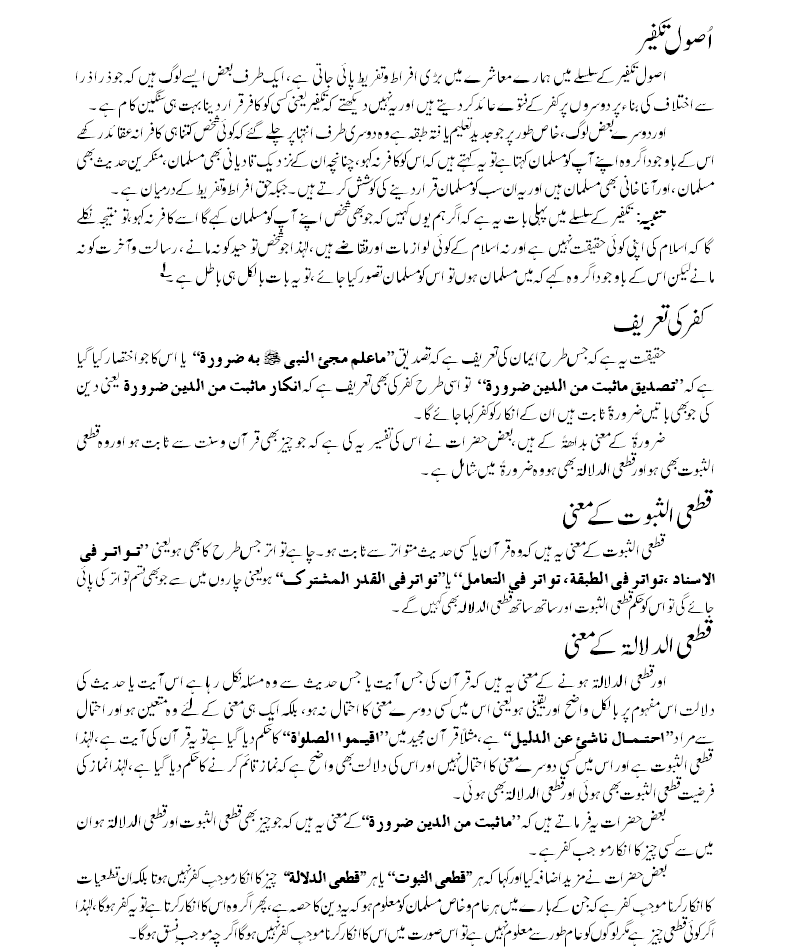 اُصول تکفیر
اصول تکفیر کے سلسلے میں ہمارے معاشرے میں بڑی افراط وتفریط پائی جاتی ہے، ایک طرف بعض ایسے لوگ ہیں کہ جو ذرا ذرا
سے اختلاف کی بناء پر دوسروں پر کفر کے فتوے عائد کردیتے ہیں اور یہ نہیں دیکھتے کہ تکفیر یعنی کسی کو کافر قرار دینا بہت ہی سنگین کام ہے۔
اور دوسرے بعض لوگ، خاص طور پر جو جدید تعلیم یافتہ طبقہ ہے وہ دوسری طرف انتہا پر چلے گئے کہ کوئی شخص کتنا ہی کافرانہ عقائد رکھے
اس کے باوجود اگر وہ اپنے آپ کو مسلمان کہتا ہے تو یہ کہتے ہیں کہ اس کو کافر نہ کہو، چنانچہ ان کے نزدیک قادیانی بھی مسلمان، منکرین حدیث بھی
مسلمان، اور آغا خانی بھی مسلمان ہیں اور یہ ان سب کو مسلمان قرار دینے کی کوشش کرتے ہیں۔ جبکہ حق افراط وتفریط کے درمیان ہے۔
تنبیہ: تکفیر کے سلسلے میں پہلی بات یہ ہے کہ اگر ہم یوں کہیں کہ جو بھی شخص اپنے آپ کو مسلمان کہے گا اسے کافر نہ کہو، تو نتیجہ نکلے
گا کہ اسلام کی اپنی کوئی حقیقت نہیں ہے اور نہ اسلام کے کوئی لوازمات اور تقاضے ہیں، لہٰذا جو شخص توحید کو نہ مانے، رسالت وآخرت کو نہ
مانے لیکن اس کے باوجود اگر وہ کہے کہ میں مسلمان ہوں تو اس کو مسلمان تصور کیا جائے، تو یہ بات بالکل ہی باطل ہے۔ لے
کفر کی تعریف
حقیقت یہ ہے کہ جس طرح ایمان کی تعریف ہے کہ تصدیق ”ماعلم مجئ النبی ﷺ به ضرورة“ یا اس کا جو اختصار کیا گیا
ہے کہ ”تصدیق ماثبت من الدین ضرورة“ تو اسی طرح کفر کی بھی تعریف ہے کہ انکار ماثبت من الدین ضرورة یعنی دین
کی جو بھی باتیں ضرورۃً ثابت ہیں ان کے انکار کو کفر کہا جائے گا۔
ضرورۃً کے معنی بداھۃً کے ہیں، بعض حضرات نے اس کی تفسیر یہ کی ہے کہ جو چیز بھی قرآن وسنت سے ثابت ہو اور وہ قطعی
الثبوت بھی ہو اور قطعی الدلالة بھی ہو وہ ضرورۃً میں شامل ہے۔
قطعی الثبوت کے معنی
قطعی الثبوت کے معنی یہ ہیں کہ وہ قرآن یا کسی حدیث متواتر سے ثابت ہو۔ چاہے تواتر جس طرح کا بھی ہو یعنی ”تواتر فی
الاسناد، تواتر فی الطبقة، تواتر فی التعامل“ یا ”تواتر فی القدر المشترک“ ہو یعنی چاروں میں سے جو بھی قسم تواتر کی پائی
جائے گی تو اس کو حکم قطعی الثبوت اور ساتھ ساتھ قطعی الدلالہ بھی کہیں گے۔
قطعی الدلالة کے معنی
اور قطعی الدلالۃ ہونے کے معنی یہ ہیں کہ قرآن کی جس آیت یا جس حدیث سے وہ مسئلہ نکل رہا ہے اس آیت یا حدیث کی
دلالت اس مفہوم پر بالکل واضح اور یقینی ہو یعنی اس میں کسی دوسرے معنی کا احتمال نہ ہو، بلکہ ایک ہی معنی کے لئے وہ متعین ہو اور احتمال
سے مراد ”احتمال ناشئ عن الدلیل“ ہے، مثلاً قرآن مجید میں ”اقیموا الصلوٰة“ کا حکم دیا گیا ہے تو یہ قرآن کی آیت ہے، لہٰذا
قطعی الثبوت ہے اور اس میں کسی دوسرے معنی کا احتمال نہیں اور اس کی دلالت بھی واضح ہے کہ نماز قائم کرنے کا حکم دیا گیا ہے، لہٰذا نماز کی
فرضیت قطعی الثبوت بھی ہوئی اور قطعی الدلالۃ بھی ہوئی۔
بعض حضرات یہ فرماتے ہیں کہ ”ماثبت من الدین ضرورة“ کے معنی یہ ہیں کہ جو چیز بھی قطعی الثبوت اور قطعی الدلالۃ ہو ان
میں سے کسی چیز کا انکار موجب کفر ہے۔
بعض حضرات نے مزید اضافہ کیا اور کہا کہ ہر ”قطعی الثبوت“ یا ہر ”قطعی الدلالة“ چیز کا انکار موجب کفر نہیں ہوتا بلکہ ان قطعیات
کا انکار کرنا موجب کفر ہے کہ جن کے بارے میں ہر عام وخاص مسلمان کو معلوم ہو کہ یہ دین کا حصہ ہے، پھر اگر وہ اس کا انکار کرتا ہے تو یہ کفر ہوگا، لہٰذا
اگر کوئی قطعی چیز ہے مگر لوگوں کو عام طور سے معلوم نہیں ہے تو اس صورت میں اس کا انکار کرنا موجب کفر نہیں ہوگا اگرچہ موجب فسق ہوگا۔